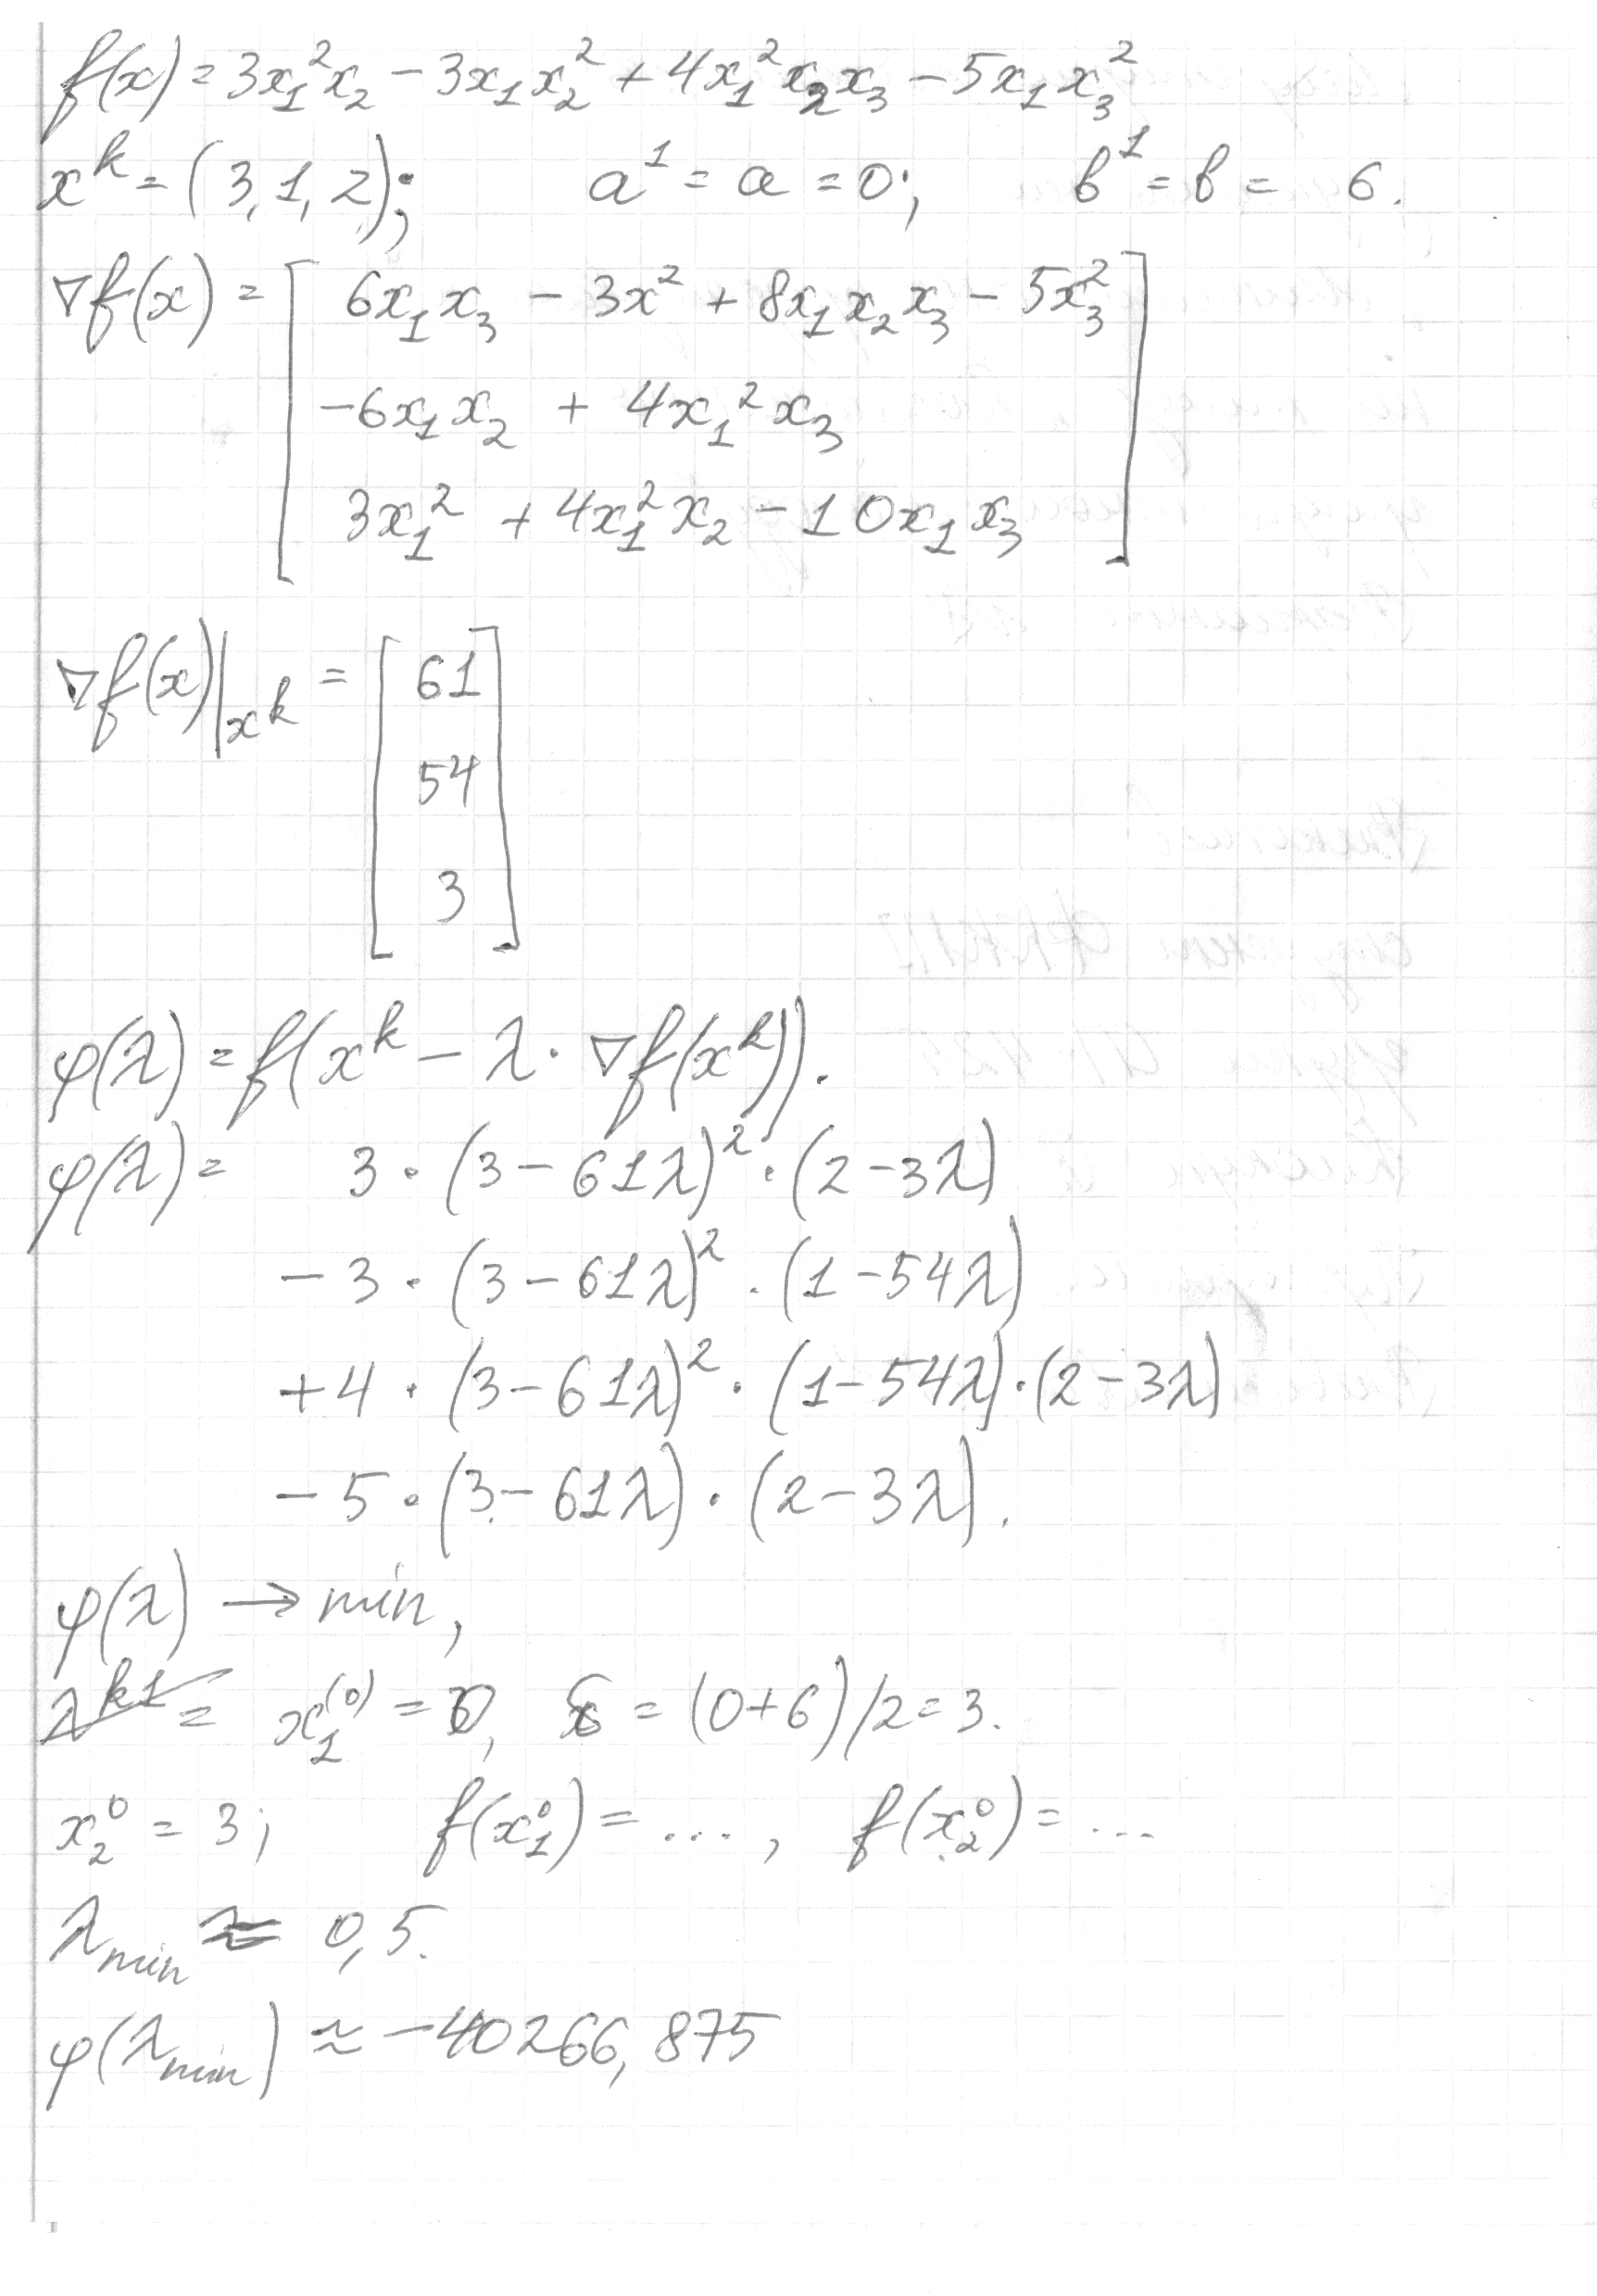 f(x) = 3x₁²x₂ − 3x₁x₂² + 4x₁²x₂x₃ − 5x₁x₃²
xᵏ = (3, 1, 2); a¹ = a = 0; b¹ = b = 6.
∇f(x) = [ 6x₁x₃ − 3x² + 8x₁x₂x₃ − 5x₃²
−6x₁x₂ + 4x₁²x₃
3x₁² + 4x₁²x₂ − 10x₁x₃ ]
∇f(x)|xᵏ = [ 61
54
3 ]
φ(λ) = f(xᵏ − λ · ∇f(xᵏ)).
φ(λ) = 3 · (3 − 61λ)² · (2 − 3λ)
− 3 · (3 − 61λ)² · (1 − 54λ)
+ 4 · (3 − 61λ)² · (1 − 54λ) · (2 − 3λ)
− 5 · (3 − 61λ) · (2 − 3λ).
φ(λ) → min,
x₁⁽⁰⁾ = 0, = (0 + 6)/2 = 3.
x₂⁰ = 3; f(x₁⁰) = ..., f(x₂⁰) = ...
λmin ≈ 0,5.
φ(λmin) ≈ −40266,875